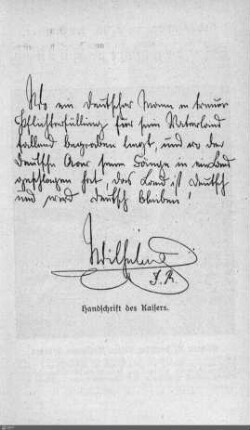 Wo ein deutscher Mann in treuer
Pflichterfüllung für sein Vaterland
fallend begraben liegt, und wo der
deutsche Aar seine Fänge in ein Land
geschlagen hat, das Land ist deutsch
und wird deutsch bleiben!
Wilhelm
I. R.
Handschrift des Kaisers.